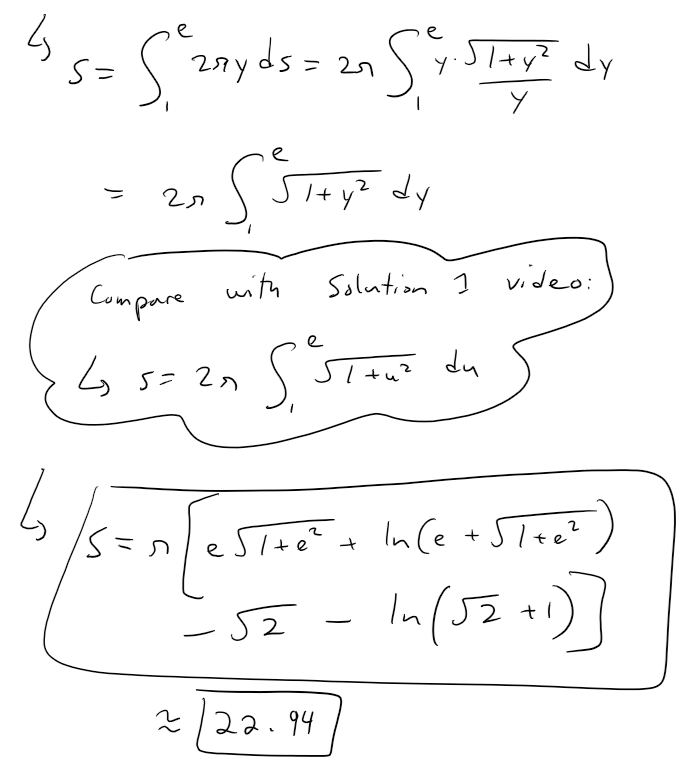 ↳ S = ∫₁ᵉ 2πy ds = 2π ∫₁ᵉ y · √(1+y²)/y dy
= 2π ∫₁ᵉ √(1+y²) dy
Compare with Solution 1 video:
↳ S = 2π ∫₁ᵉ √(1+u²) du
↳ S = π[e√(1+e²) + ln(e + √(1+e²))
− √2 − ln(√2 + 1)]
≈ 22.94